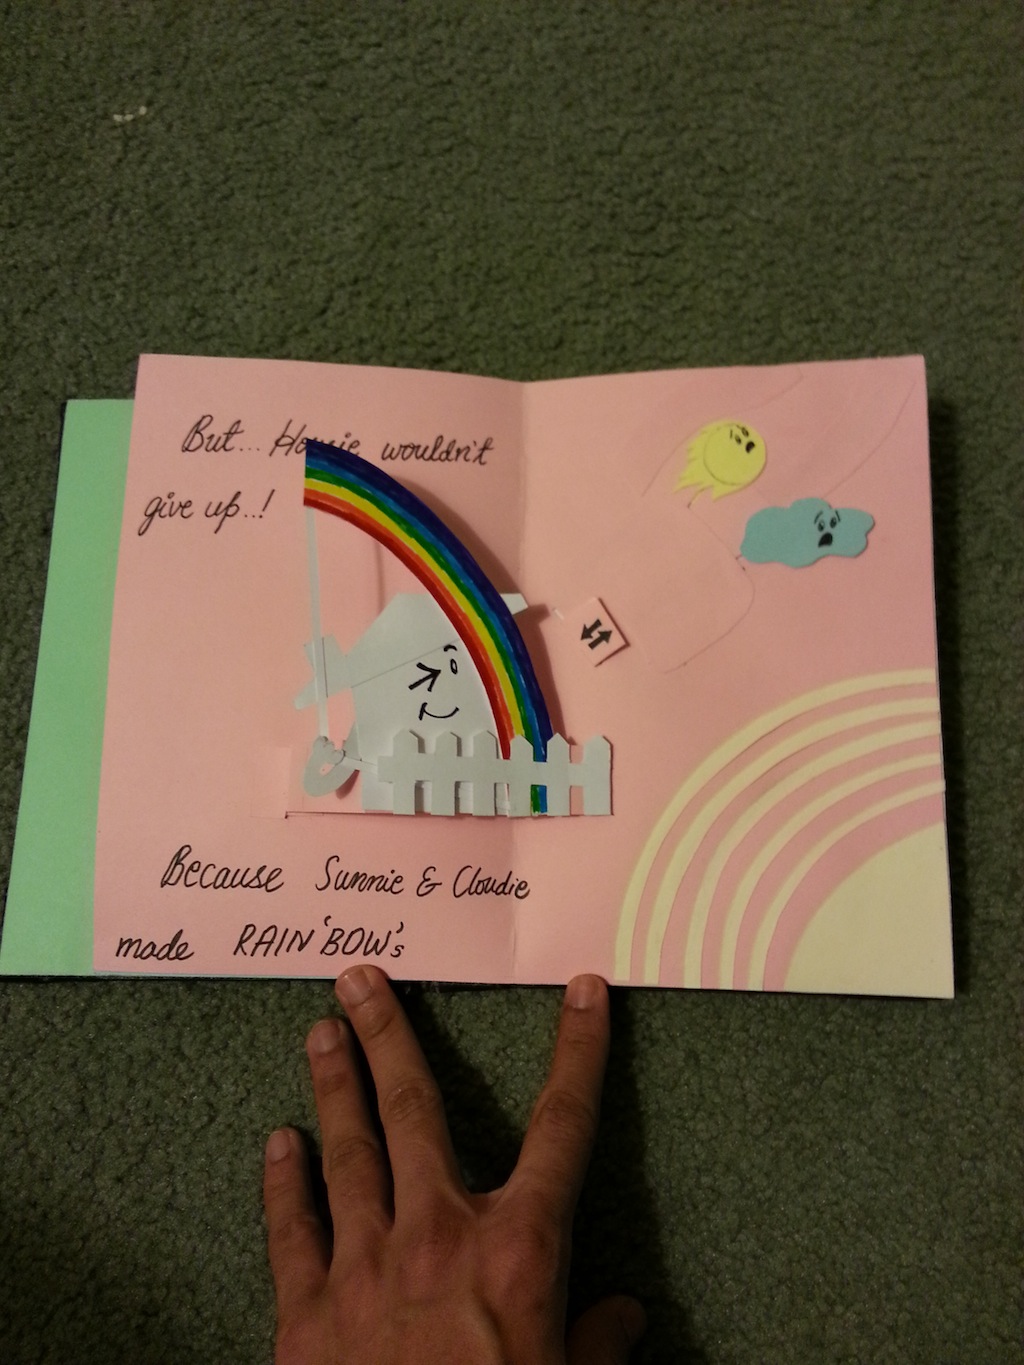 But... Housie wouldn't
give up..!
Because Sunnie & Cloudie
made RAIN'BOW's